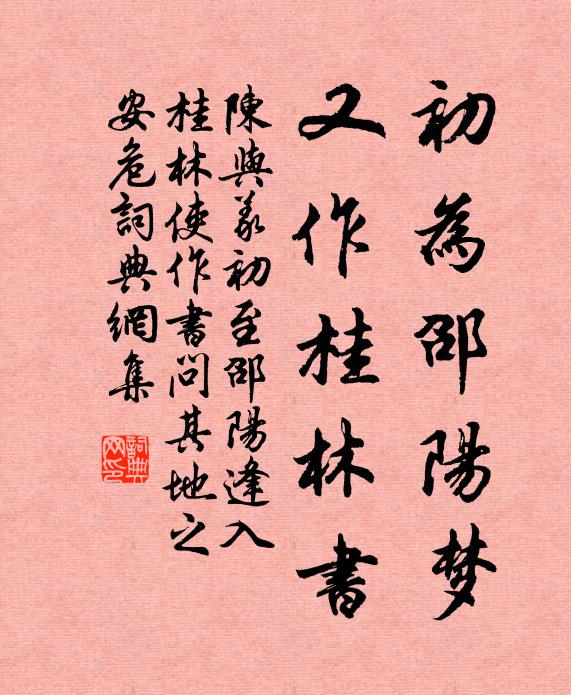 初為邵陽梦
又作桂林書
陳與義初至邵陽逢入
桂林使作書問其地之
安危詞典網集
詞典网印